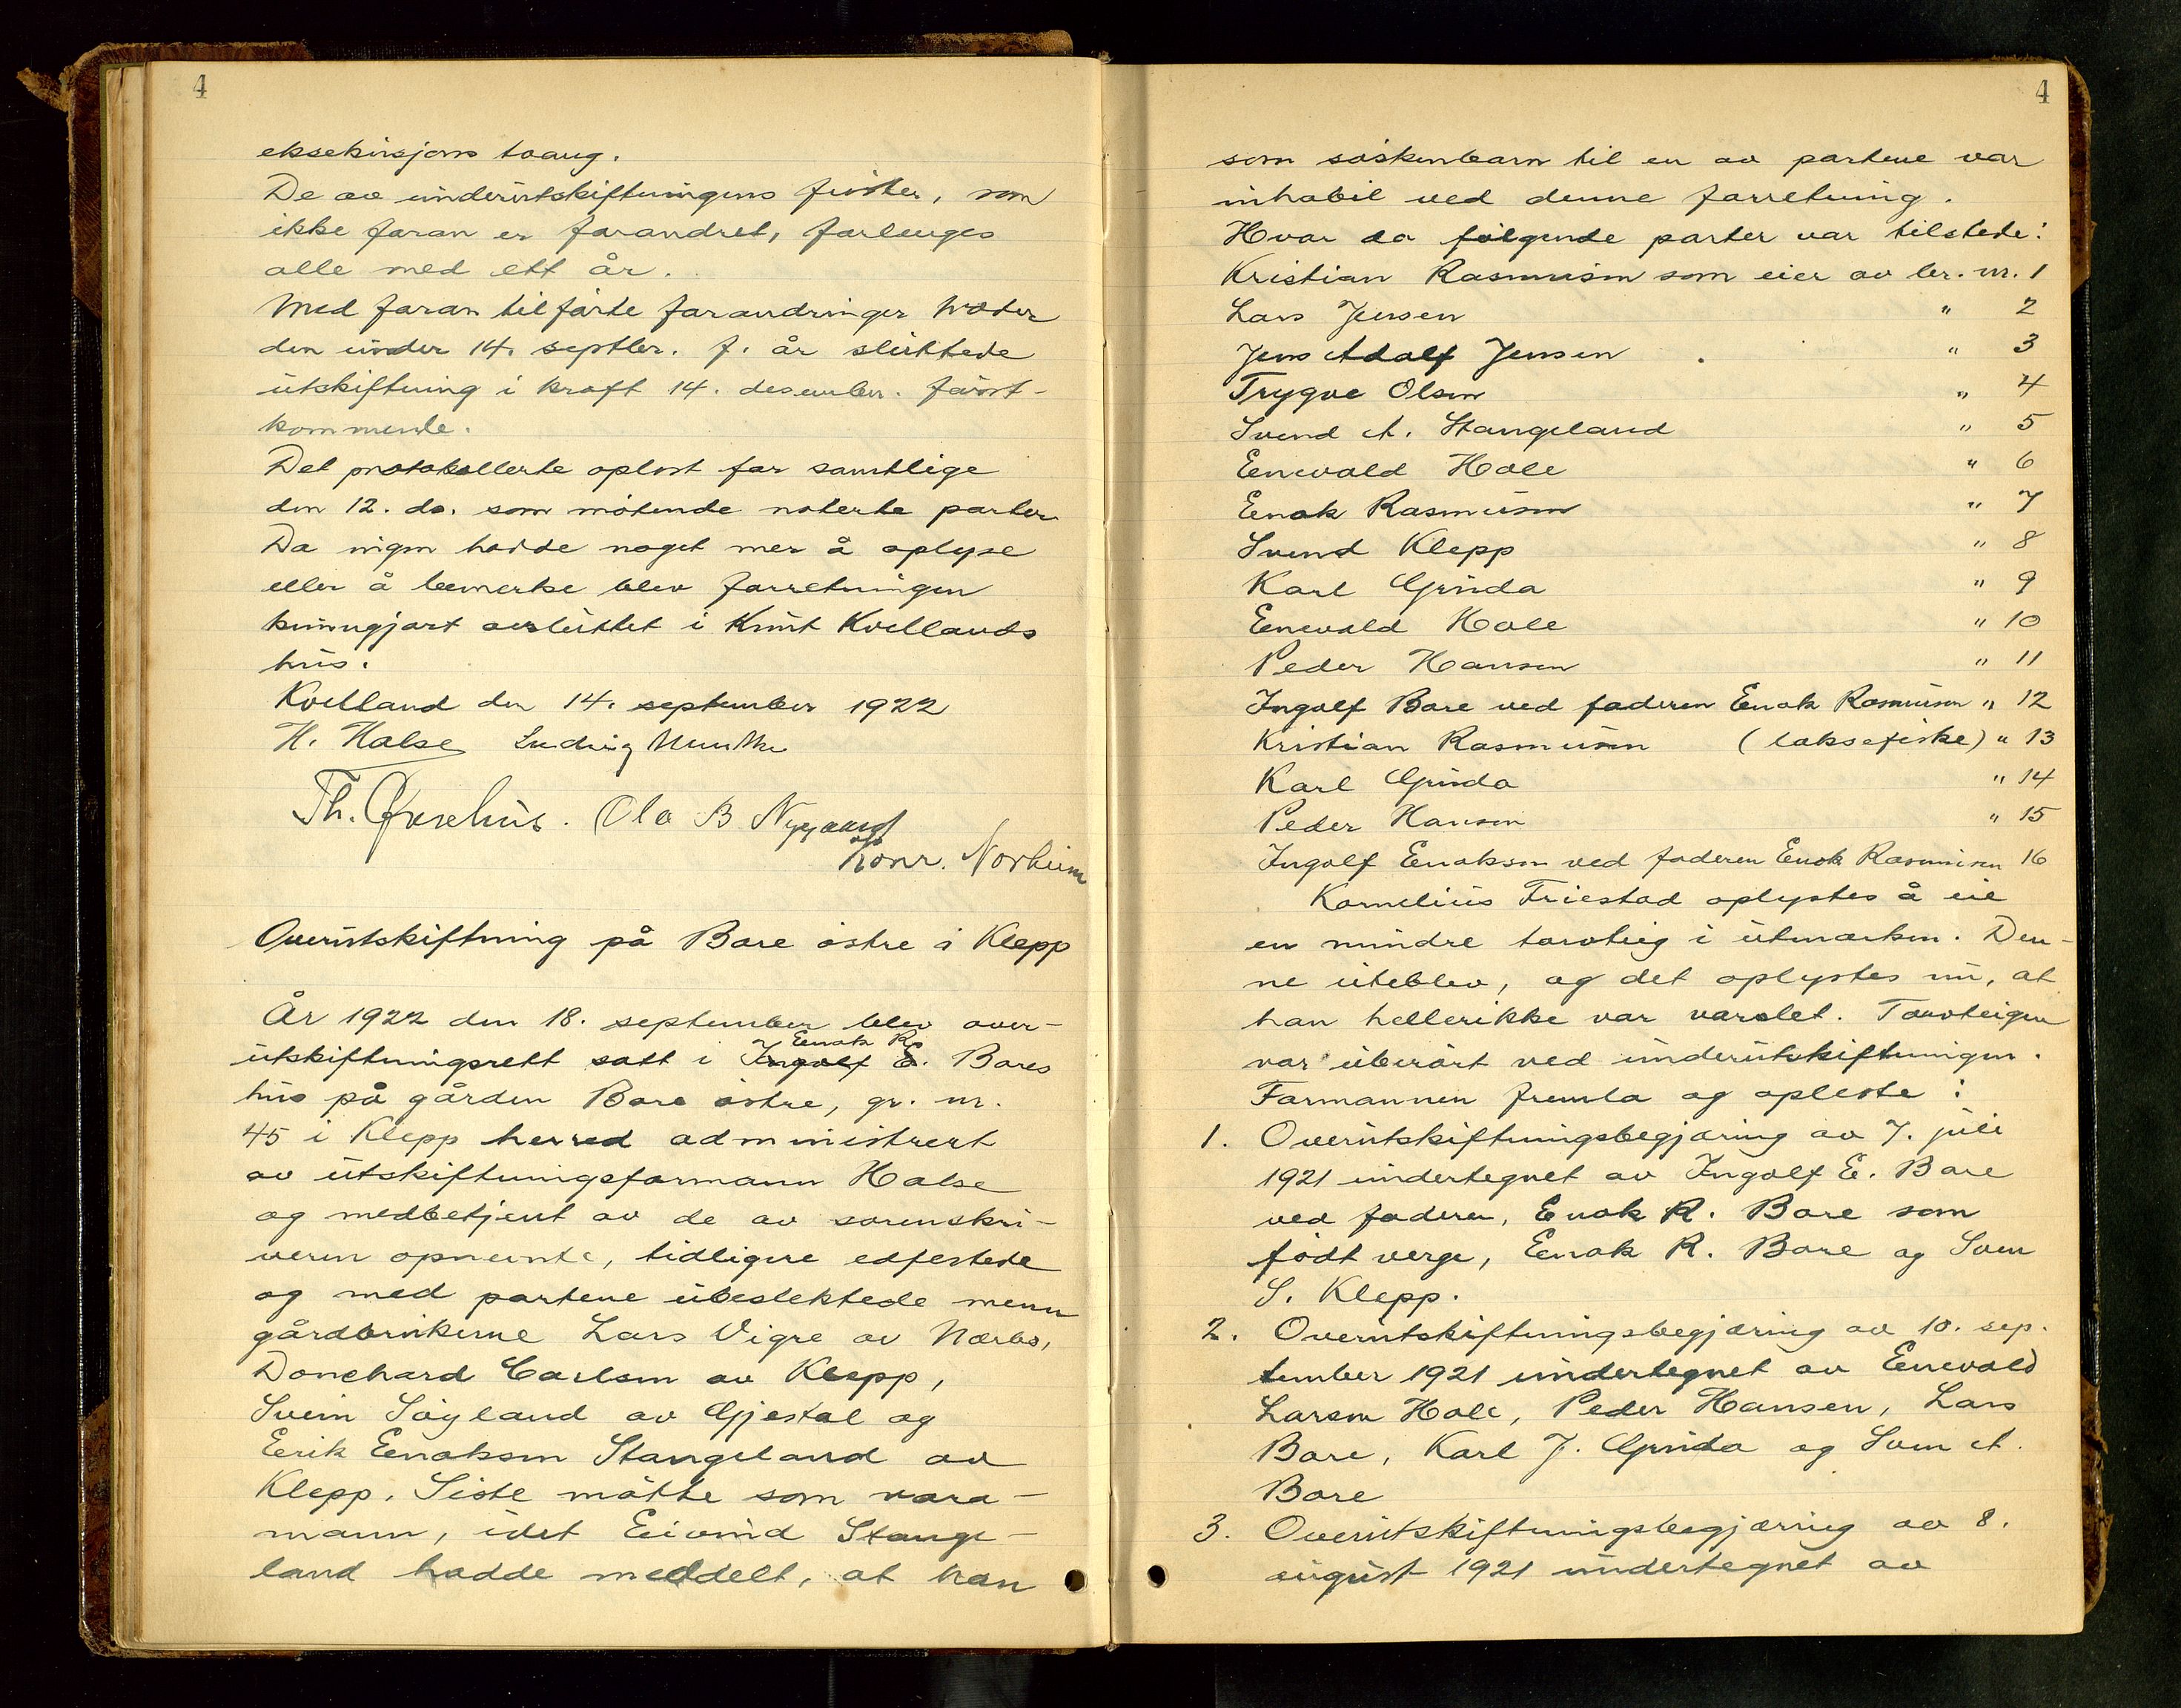 4
eksekusjons tvang.
De av underutskiftningens frister, som
ikke foran er forandret, forlenges
alle med ett år.
Med foran tilførte forandringer treder
den under 14. septbr. f. år sluttede
utskiftning i kraft 14. desember. først-
kommende.
Det protokollerte oplest for samtlige
den 12. ds. som møtende noterte parter
Da ingen hadde noget mer å oplyse
eller å bemerke blev forretningen
kunngjort avsluttet i Knut Kvellands
hus.
Kvelland den 14. september 1922
H. Halse Ludvig Munthe
Th. Ola B Nygaard
Konr. Norheim
Overutskiftning på Bore østre i Klepp
År 1922 den 18. september blev over-
Enok R.
utskiftningsrett satt i Ingolf E. Bores
hus på gården Bore østre, gr. nr.
45 i Klepp herred administrert
av utskiftningsformann Halse
og medbetjent av de av sorenskri-
veren opnevnte, tidligere edfestede
og med partene ubeslektede menn
gårdbrukerne Lars Vigre av Nærbø,
Donehard Carlsen av Klepp,
Svein Søyland av Gjestal og
Erik Enoksen Stangeland av
Klepp. Siste møtte som vara-
mann, idet Eivind Stange-
land hadde meddelt, at han
4
som søskenbarn til en av partene var
inhabil ved denne forretning.
Hvor da følgende parter var tilstede:
Kristian Rasmussen som eier av br. nr. 1
Lars Jensen " 2
Jens Adolf Jensen " 3
Trygve Olsen " 4
Svend A. Stangeland " 5
Enevald Hole " 6
Enok Rasmussen " 7
Svend Klepp " 8
Karl Gruda " 9
Enevald Hole " 10
Peder Hansen " 11
Ingolf Bore ved faderen Enok Rasmussen " 12
Kristian Rasmussen (laksefiske) " 13
Karl Gruda " 14
Peder Hansen " 15
Ingolf Enoksen ved faderen Enok Rasmussen 16
Kornelius Friestad oplystes å eie
en mindre torvteig i utmarken. Den-
ne uteblev, og det oplystes nu, at
han hellerikke var varslet. Torvteigen
var uberørt ved underutskiftningen.
Formannen fremla og opleste:
1. Overutskiftningsbegjæring av 7. juli
1921 undertegnet av Ingolf E. Bore
ved faderen, Enok R. Bore som
født verge, Enok R. Bore og Sven
S. Klepp.
2. Overutskiftningsbegjæring av 10. sep-
tember 1921 undertegnet av Enevald
Larsen Hole, Peder Hansen, Lars
Bore, Karl J. Gruda og Sven A.
Bore
3. Overutskiftningsbegjæring av 8.
august 1921 undertegnet av